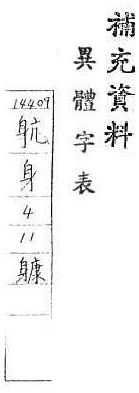 補充資料
異體字表
14409
躴
身
4
11
躿